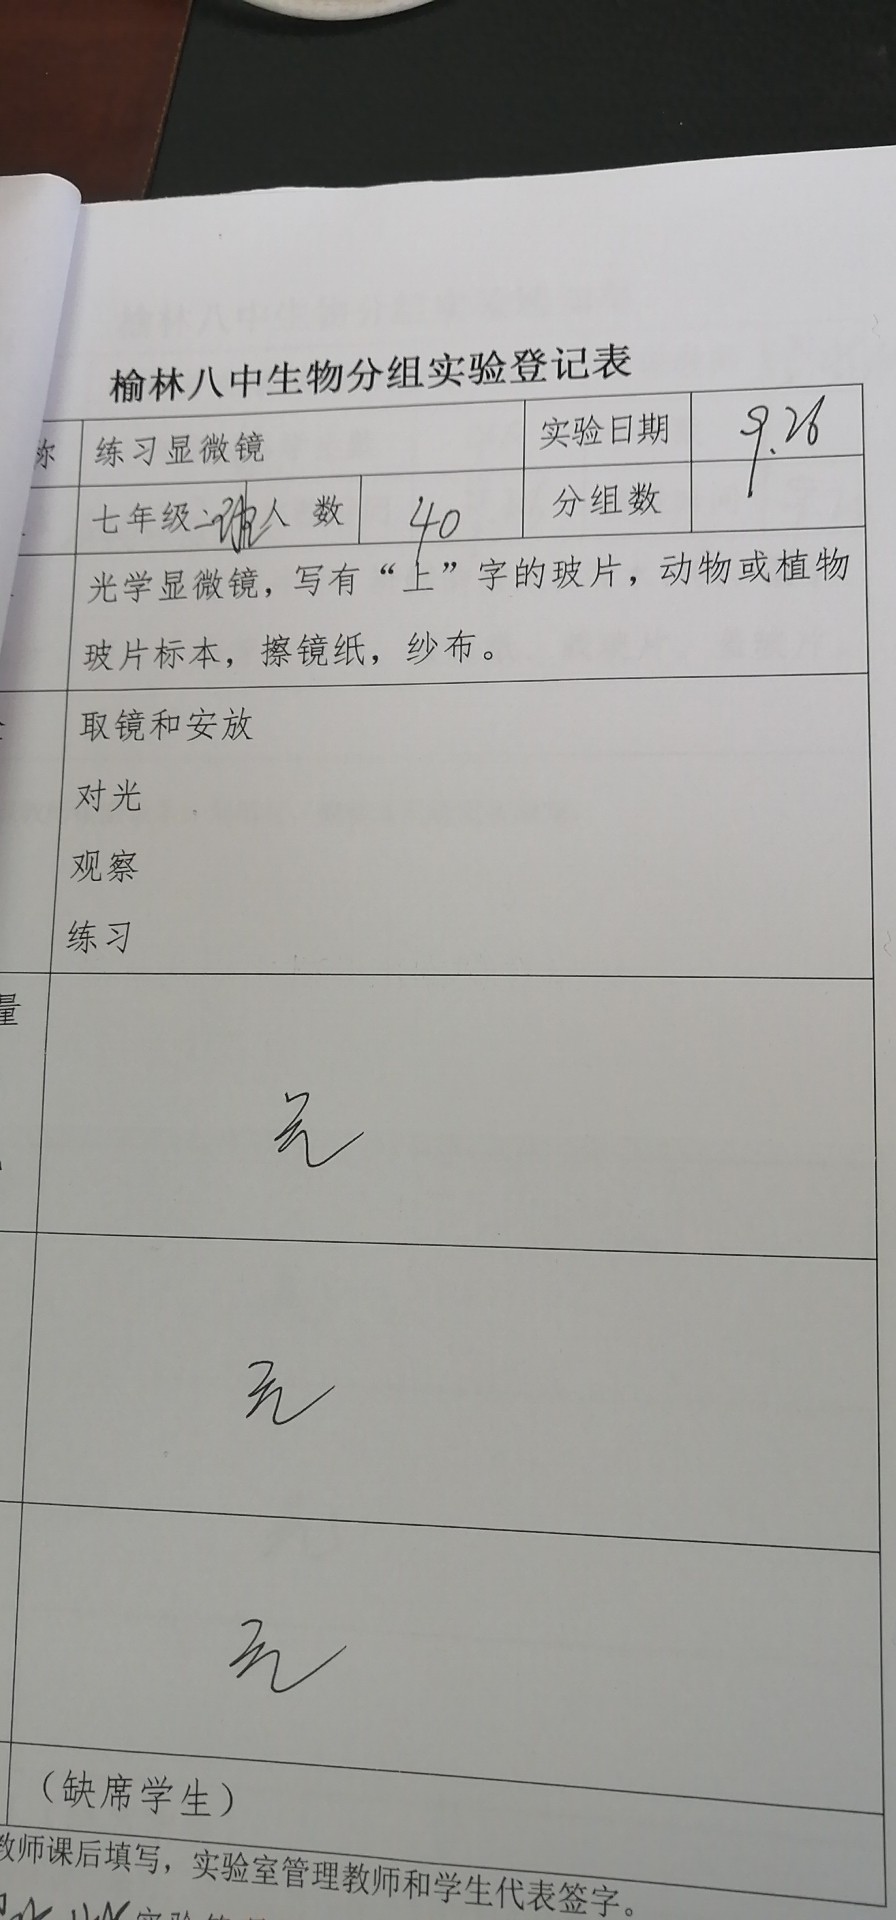 榆林八中生物分组实验登记表
称 练习显微镜 实验日期 9.26
七年级二班 人 数 40 分组数
光学显微镜，写有“上”字的玻片，动物或植物
玻片标本，擦镜纸，纱布。
取镜和安放
对光
观察
练习
量
无
无
无
（缺席学生）
教师课后填写，实验室管理教师和学生代表签字。